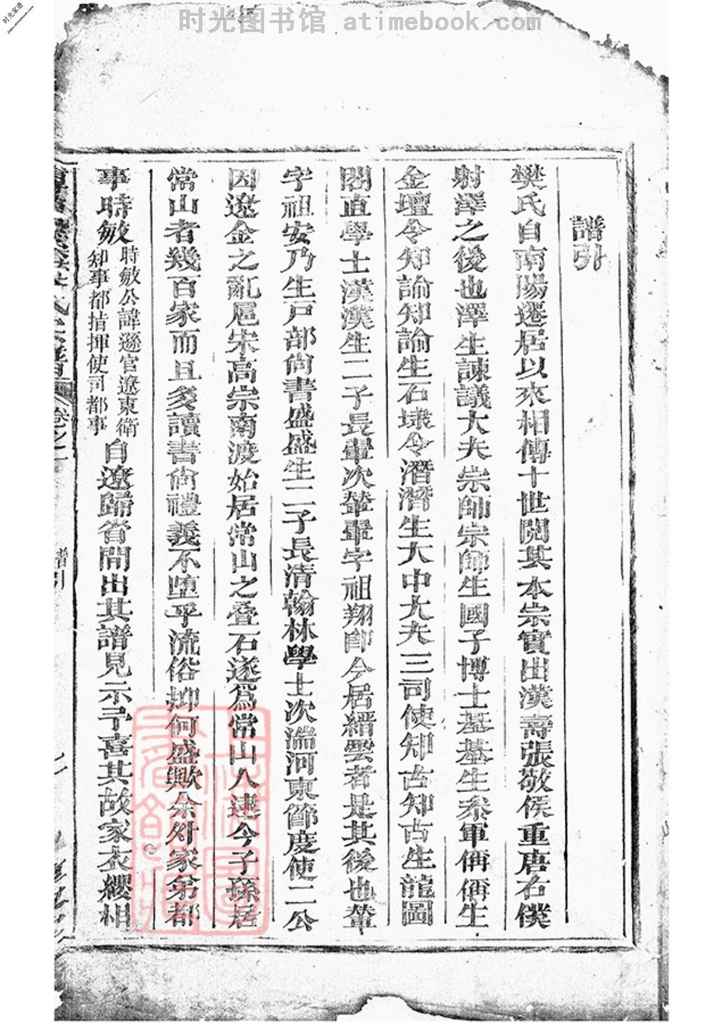 时光图书馆 atimebook.com
譜引
樊氏自南陽遷居以來相傳十世閱其本宗實出漢壽張敬侯重唐右僕
射澤之後也澤生諫議大夫宗師宗師生國子博士基基生參軍倩倩生
金壇令知諭知諭生石埭令潛潛生大中大夫三司使知古知古生龍圖
閣直學士漢漢生二子長暈次輦暈字祖翔即今居縉雲者是其後也輦
字祖安乃生戶部尙書盛盛生二子長清翰林學士次湍河東節度使二公
因遼金之亂扈宋高宗南渡始居常山之叠石遂爲常山人逮今子孫居
常山者幾百家而且多讀書尙禮義不墮乎流俗抑何盛歟余外家弟都
事時敏
時敏公諱遜官遼東衛
知事都指揮使司都事
自遼歸省間出其譜見示予喜其故家衣纓相
卷之一
譜引